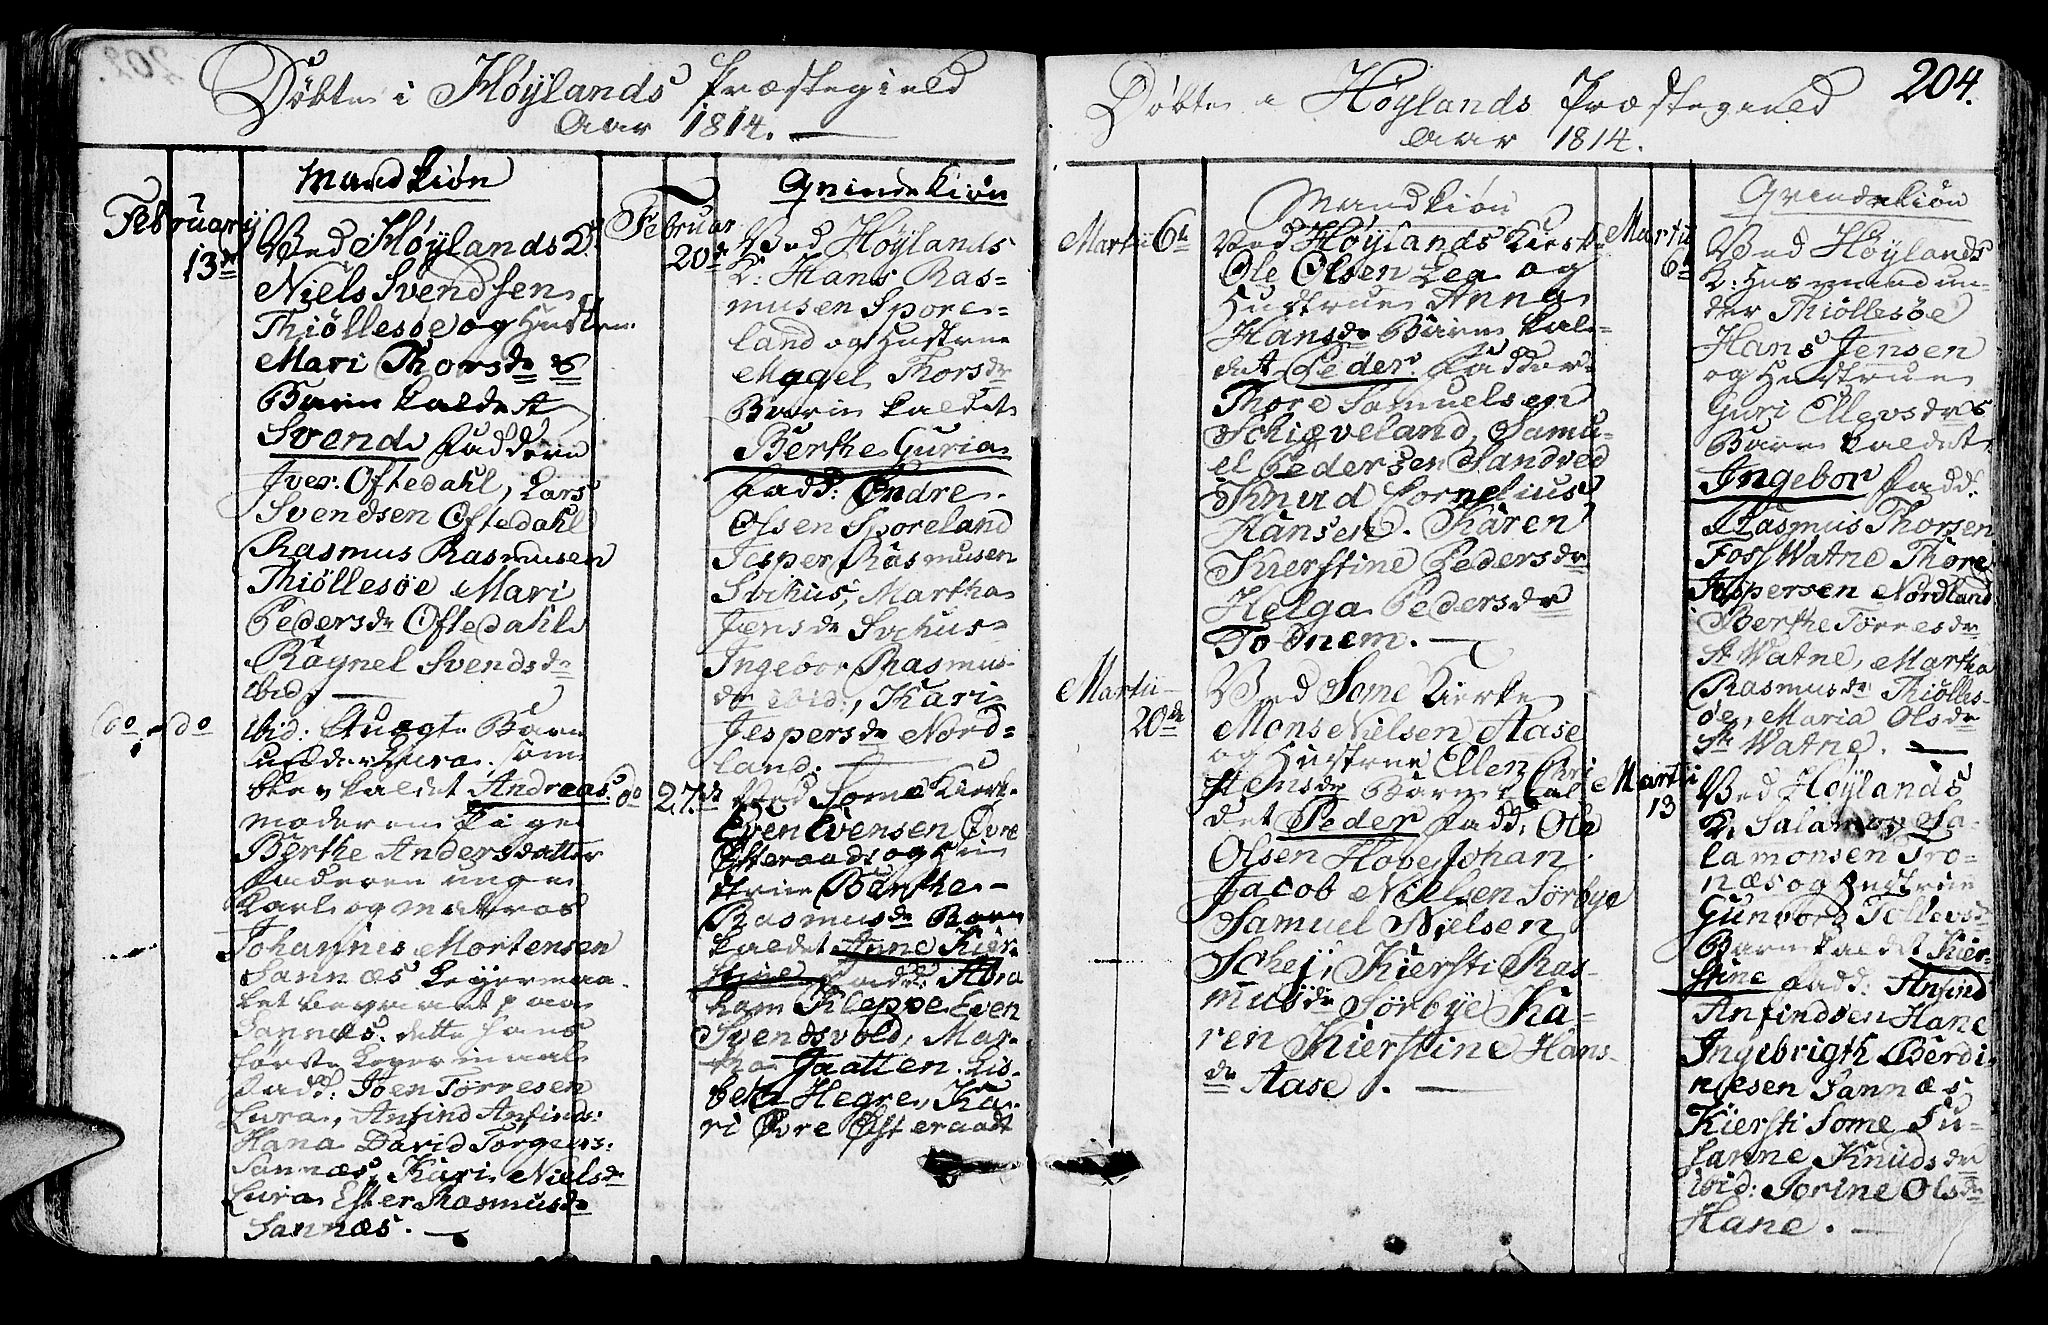 Døbte i Høylands Præstegield
Aar 1814.
Mandkiøn
Februarij
13de
Ved Høylands K.
Niels Svendsen
Thiøllesøe og Hustrue
Mari Thorsdr
Barn kaldet
Svend Faddere
Iver Oftedahl, Lars
Svendsen Oftedahl
Rasmus Rasmusen
Thiøllesøe Mari
Pedersdr Oftedahl
Ragnel Svendsdr
ibid.
do do
ibid: Uægte Barn
under Lura som
blev kaldet Andreas.
moderen Pigen
Berthe Andersdatter
Faderen unge
Karl og Matros
Johannes Mortensen
Sannæs Leyermaa-
let begaaet paa
Sannæs. dette hans
første Leyermaal
Fadd: Joen Torresen
Lura, Anfind Anfinds:
Hana David Torgers:
Sannæs, Kari Nielsdr
Lura Ester Rasmusdr
Sannæs.
Qvindekiøn
Februar
20de
Ved Høylands
K: Hans Ras-
musen Spore-
land og Hustrue
Magel Thorsdr
Barn kaldet
Berthe Guria
Fadd: Endre
Olsen Sporeland
Jesper Rasmusen
Svihus, Martha
Jensdr Svihus
Ingebor Rasmus-
dr ibid:, Kari
Jespersdr Nord-
land.
do 27de
Ved Some Kirke
Even Evensen Øvre
Østeraadt og Hu-
strue Barthe
Rasmusdr Barn
kaldet Anne Kier-
stine Fadd: Abra
ham Kleppe Even
Svendsvold, Mar-
tha Gatten. Lis-
beth Hegre, Ka-
ri Øvre Østeraadt
204.
Døbte i Høylands Præstegield
Aar 1814.
Mandkiøn
Martii 6te
Ved Høylands Kirke
Ole Olsen Lea og
Hustrue Anna
Hansdr Barn kal-
det Peder. Faddere
Thore Samuelsen
Schiæveland, Samu-
el Pedersen Sandved
Knud Cornelius
Hansen. Karen
Kierstine Pedersdr
Helga Pedersdr
Todnem.
Martii
20de
Ved Some Kierke
Mons Nielsen Aase
og Hustrue Ellen Chri
stensdr Barn kal
det Peder Fadd: Ole
Olsen Hove Johan
Jacob Nielsen Sørbye
Samuel Nielsen
Schej, Kiersti Ras-
musdr Sørbye Ka-
ren Kierstine Hans
dr Aase.
Qvindekiøn
Martii
6te
Ved Høylands
K: Husmand un-
der Thiøllesøe
Hans Jensen
og Hustrue
Guri Ellevsdr
Barn kaldet
Ingebor Fadd:
Rasmus Thorsen
Foss Watne Thore
Aspersen Nordland
Berthe Torresdr
St Watne, Martha
Rasmusdr Thiølles-
øe, Maria Olsdr
St Watne.
Martii
13
Ved Høylands
K. Salamon Sa-
lamonsen Tro-
næs og Hustrue
Gunvord Tollevsdr
Barn kaldet Kier-
stine Fadd: Anfind
Anfindsen Hane
Ingebrigth Berdi-
nesen Sannæs
Kiersti Some Su-
sanne Knudsdr
ibid: Torine Olsdr
Hane.